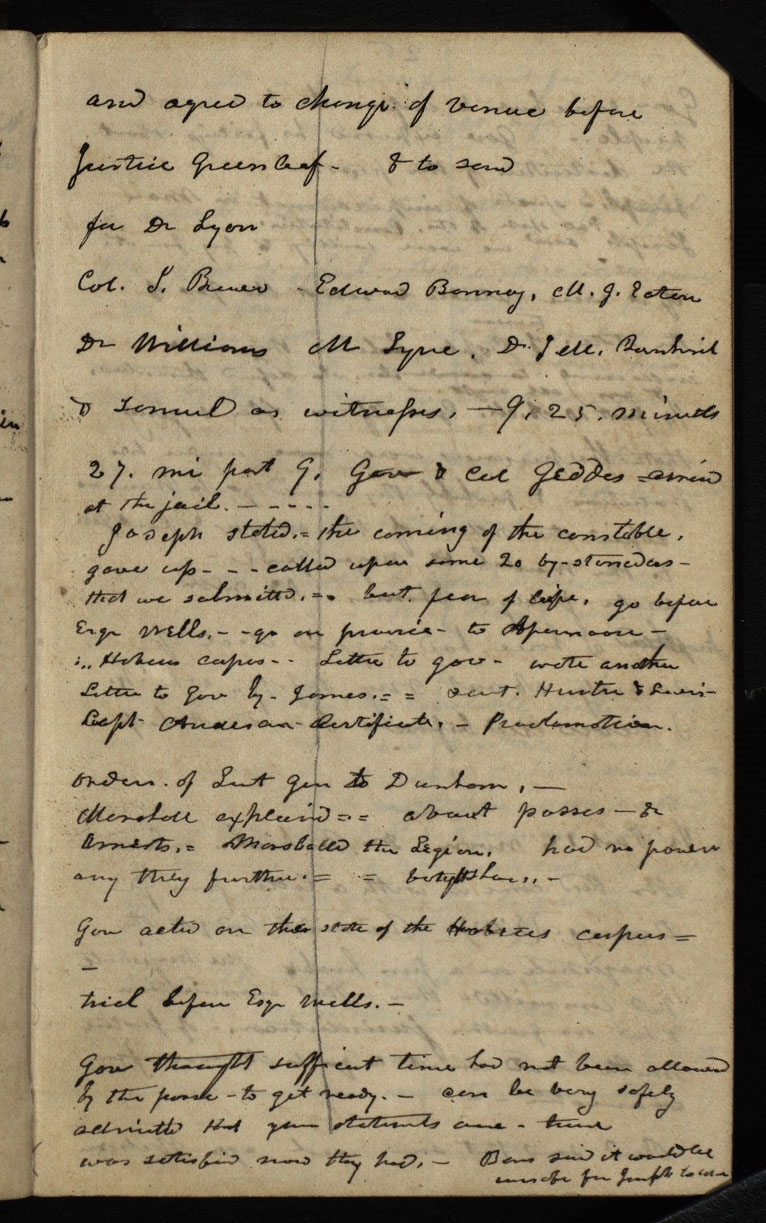 and agreed to change of venue before
Justice Greenleaf - & to send
for Dr Lyon
Col. S. Brewer - Edward Bonney, M. G. Eaton
Dr Williams M Syne, D. J ell,
& Samuel as witnesses, — 9, 25, minuts
27. mi past 9, Gov & Col Geddes =
at the jail. - - - - -
Joseph stated, = the coming of the constable,
gave up - - - called upon some 20 by-standers -
that we submitted. = = but fear of life, go before
Esqr Wells. - - go on - to Afternoon -
Habeus corpus - - Letter to gov - wrote another
Letter to Gov by - James. = = sent. Hunter & Lewis -
Capt Anderson Certificate. - Proclamation.
orders of Leut Gen to Dunham, —
Marshall explaind = = about posses — &
Arrests, = Marshalld the Legion, had no power
any they further = =
Gov acted on the state of the Habeus corpus =
-
trial before Esqr Wells. -
Gov thought sufficient time had not been allowed
by the posse - to get ready. - can be very safely
admitted that your statements are - true
was satisfied now they had, - said it would be
unsafe for Joseph to